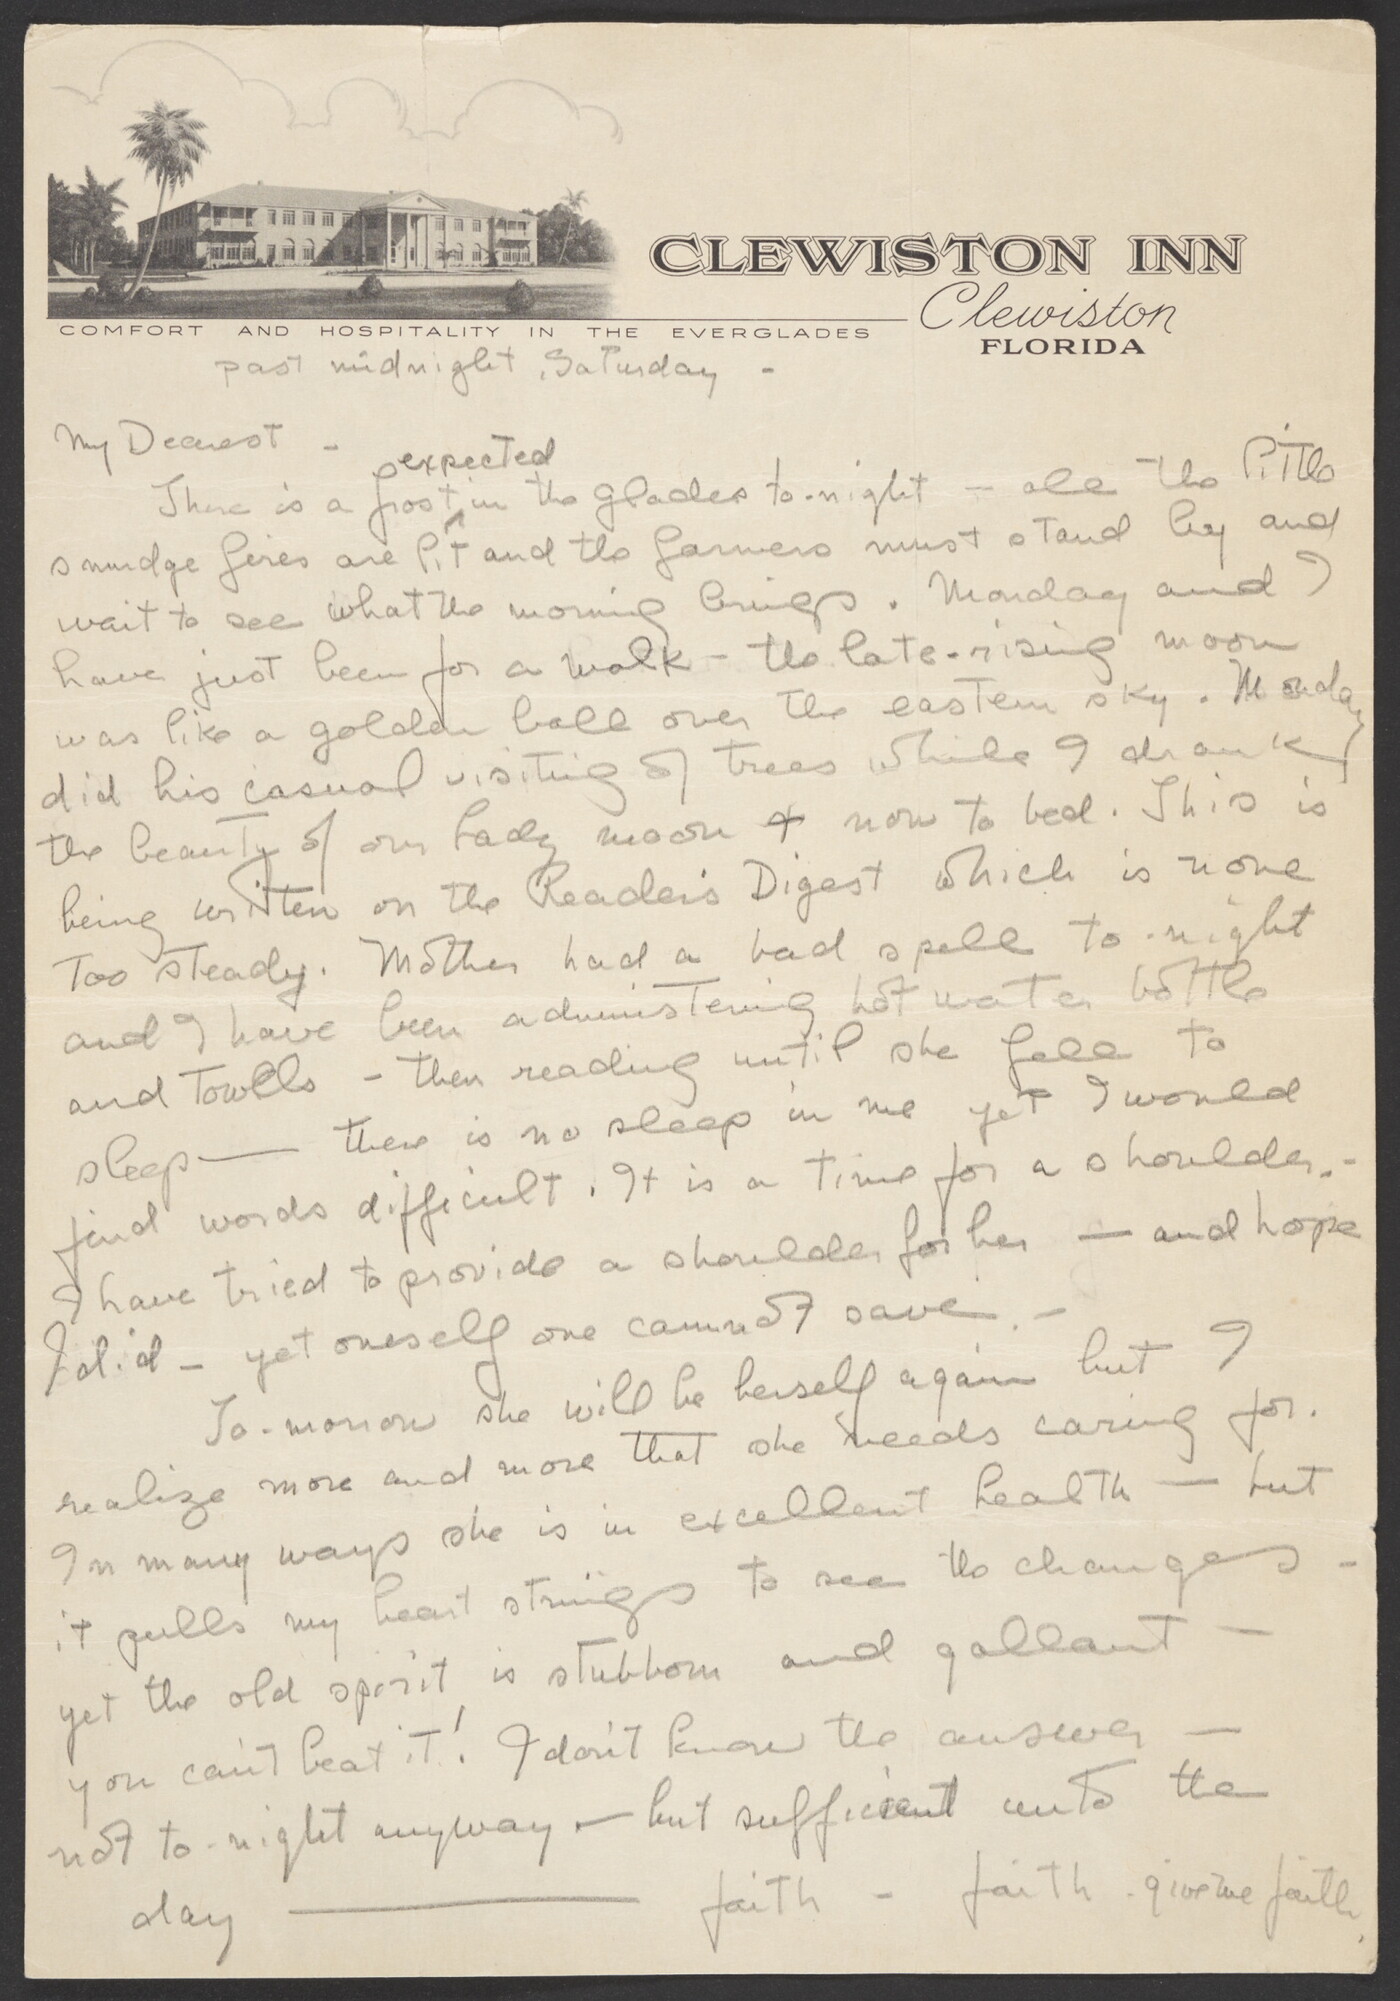 CLEWISTON INN
Clewiston
FLORIDA
COMFORT AND HOSPITALITY IN THE EVERGLADES
past midnight, Saturday -
My Dearest -
expected
There is a frost in the glades to-night - all the little
smudge fires are lit and the farmers must stand by and
wait to see what the morning brings. Monday and I
have just been for a walk - the late-rising moon
was like a golden ball over the eastern sky. Monday
did his casual visiting of trees while I drank
the beauty of our lady moon & now to bed. This is
being written on the Reader's Digest which is none
too steady. Mother had a bad spell to-night
and I have been administering hot water bottle
and towells - then reading until she fell to
sleep — there is no sleep in me yet I would
find words difficult. It is a time for a shoulder. -
I have tried to provide a shoulder for her — and hope
I did - yet oneself one cannot save. -
To-morrow she will be herself again but I
realize more and more that she needs caring for.
In many ways she is in excellent health — but
it pulls my heart strings to see the changes -
yet the old spirit is stubborn and gallant -
you can't beat it! I don't know the answer —
not to-night anyway — but sufficient unto the
day — faith - faith - give me faith.